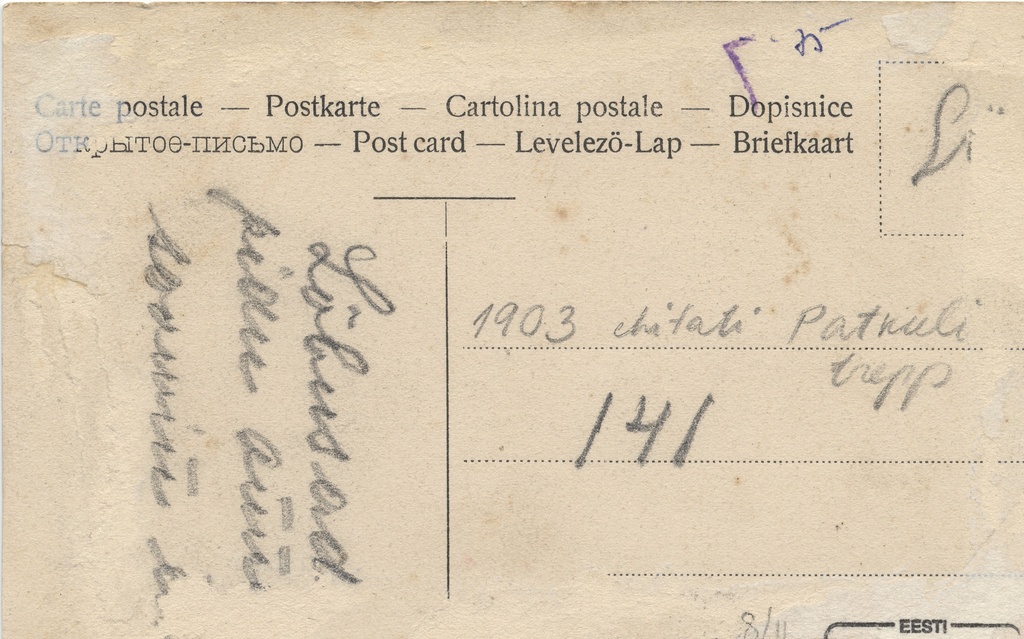 75
Carte postale — Postkarte — Cartolina postale — Dopisnice
Открытое-письмо — Post card — Levelezö-Lap — Briefkaart
Lõbusad
pidu
soovin
1903 ehitati Patkuli
trepp
141
8/II
EESTI